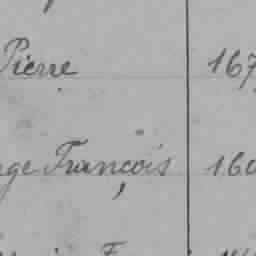 Pierre 167
ge François 160